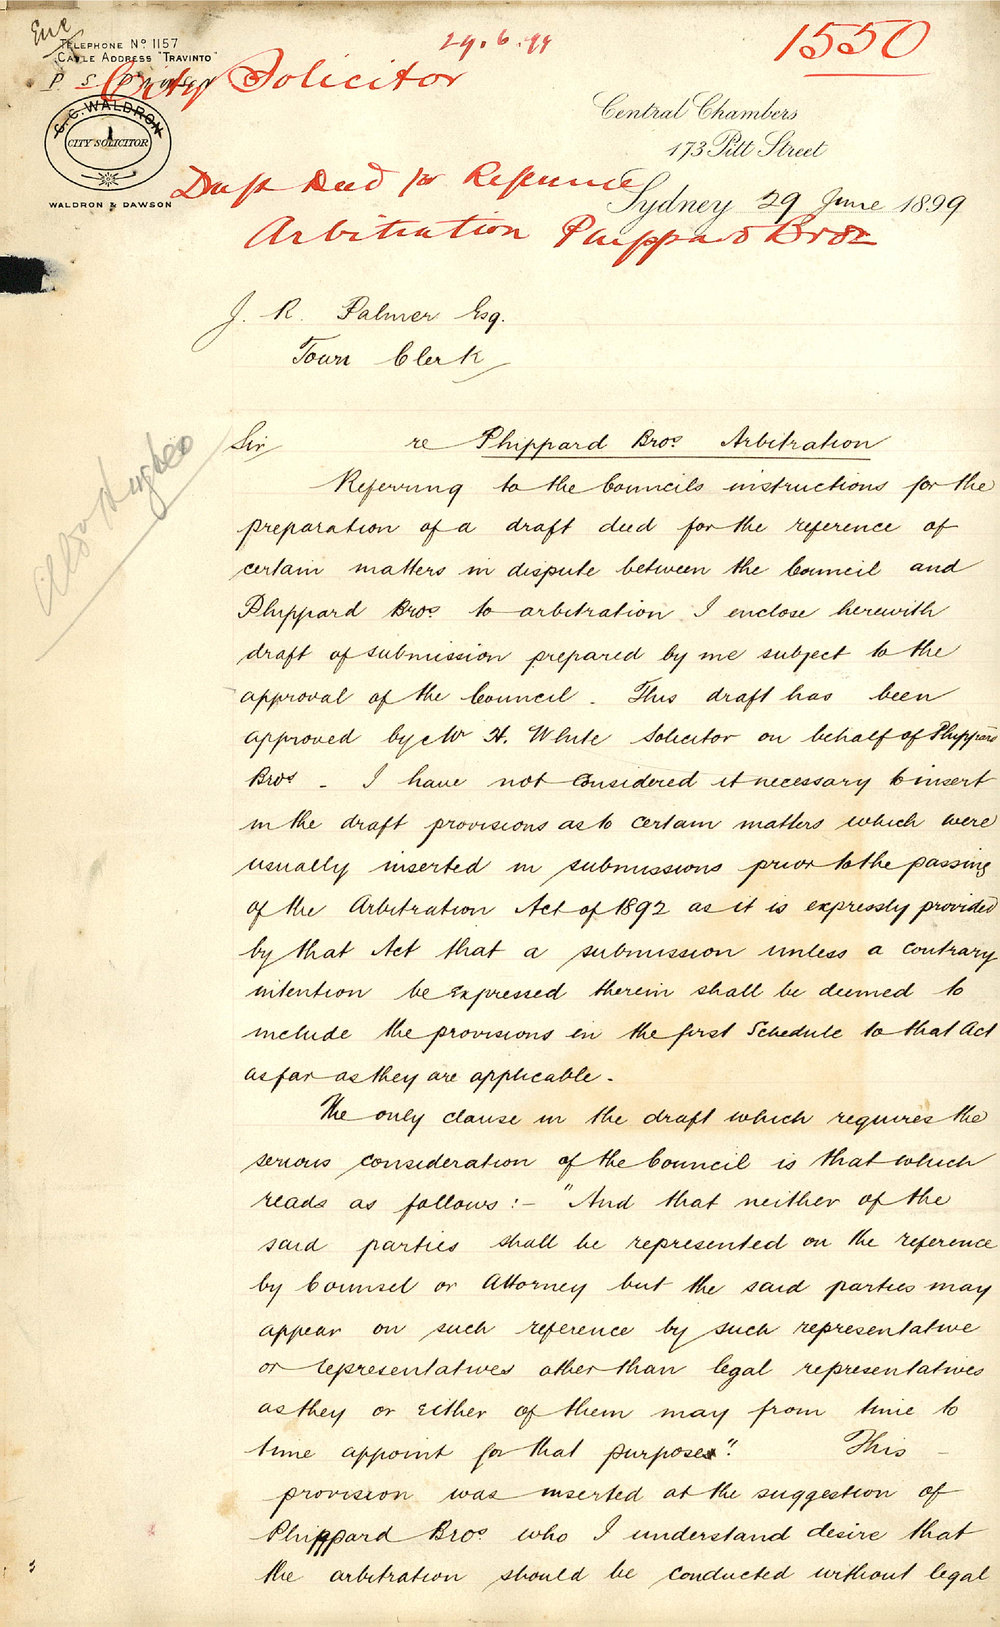 Enc
29.6.99
1550
TELEPHONE No 1157
CABLE ADDRESS "TRAVINTO"
City Solicitor
P S Dawson
C.C. WALDRON
CITY SOLICITOR
WALDRON & DAWSON
Central Chambers
173 Pitt Street
Sydney 29 June 1899
Draft Deed for Reference
Arbitration Phippard Bros
J. R. Palmer Esq.
Town Clerk
Sir re Phippard Bros. Arbitration
Referring to the Councils instructions for the
preparation of a draft deed for the reference of
certain matters in dispute between the Council and
Phippard Bros. to arbitration I enclose herewith
draft of submission prepared by me subject to the
approval of the Council. This draft has been
approved by Mr H. White Solicitor on behalf of Phippard
Bros - I have not considered it necessary to insert
in the draft provisions as to certain matters which were
usually inserted in submissions prior to the passing
of the Arbitration Act of 1892 as it is expressly provided
by that Act that a submission unless a contrary
intention be expressed therein shall be deemed to
include the provisions in the first Schedule to that Act
as far as they are applicable.
The only clause in the draft which requires the
serious consideration of the Council is that which
reads as follows:- "And that neither of the
said parties shall be represented on the reference
by Counsel or Attorney but the said parties may
appear on such reference by such representative
or representatives other than legal representatives
as they or either of them may from time to
time appoint for that purpose". This
provision was inserted at the suggestion of
Phippard Bros. who I understand desire that
the arbitration should be conducted without legal